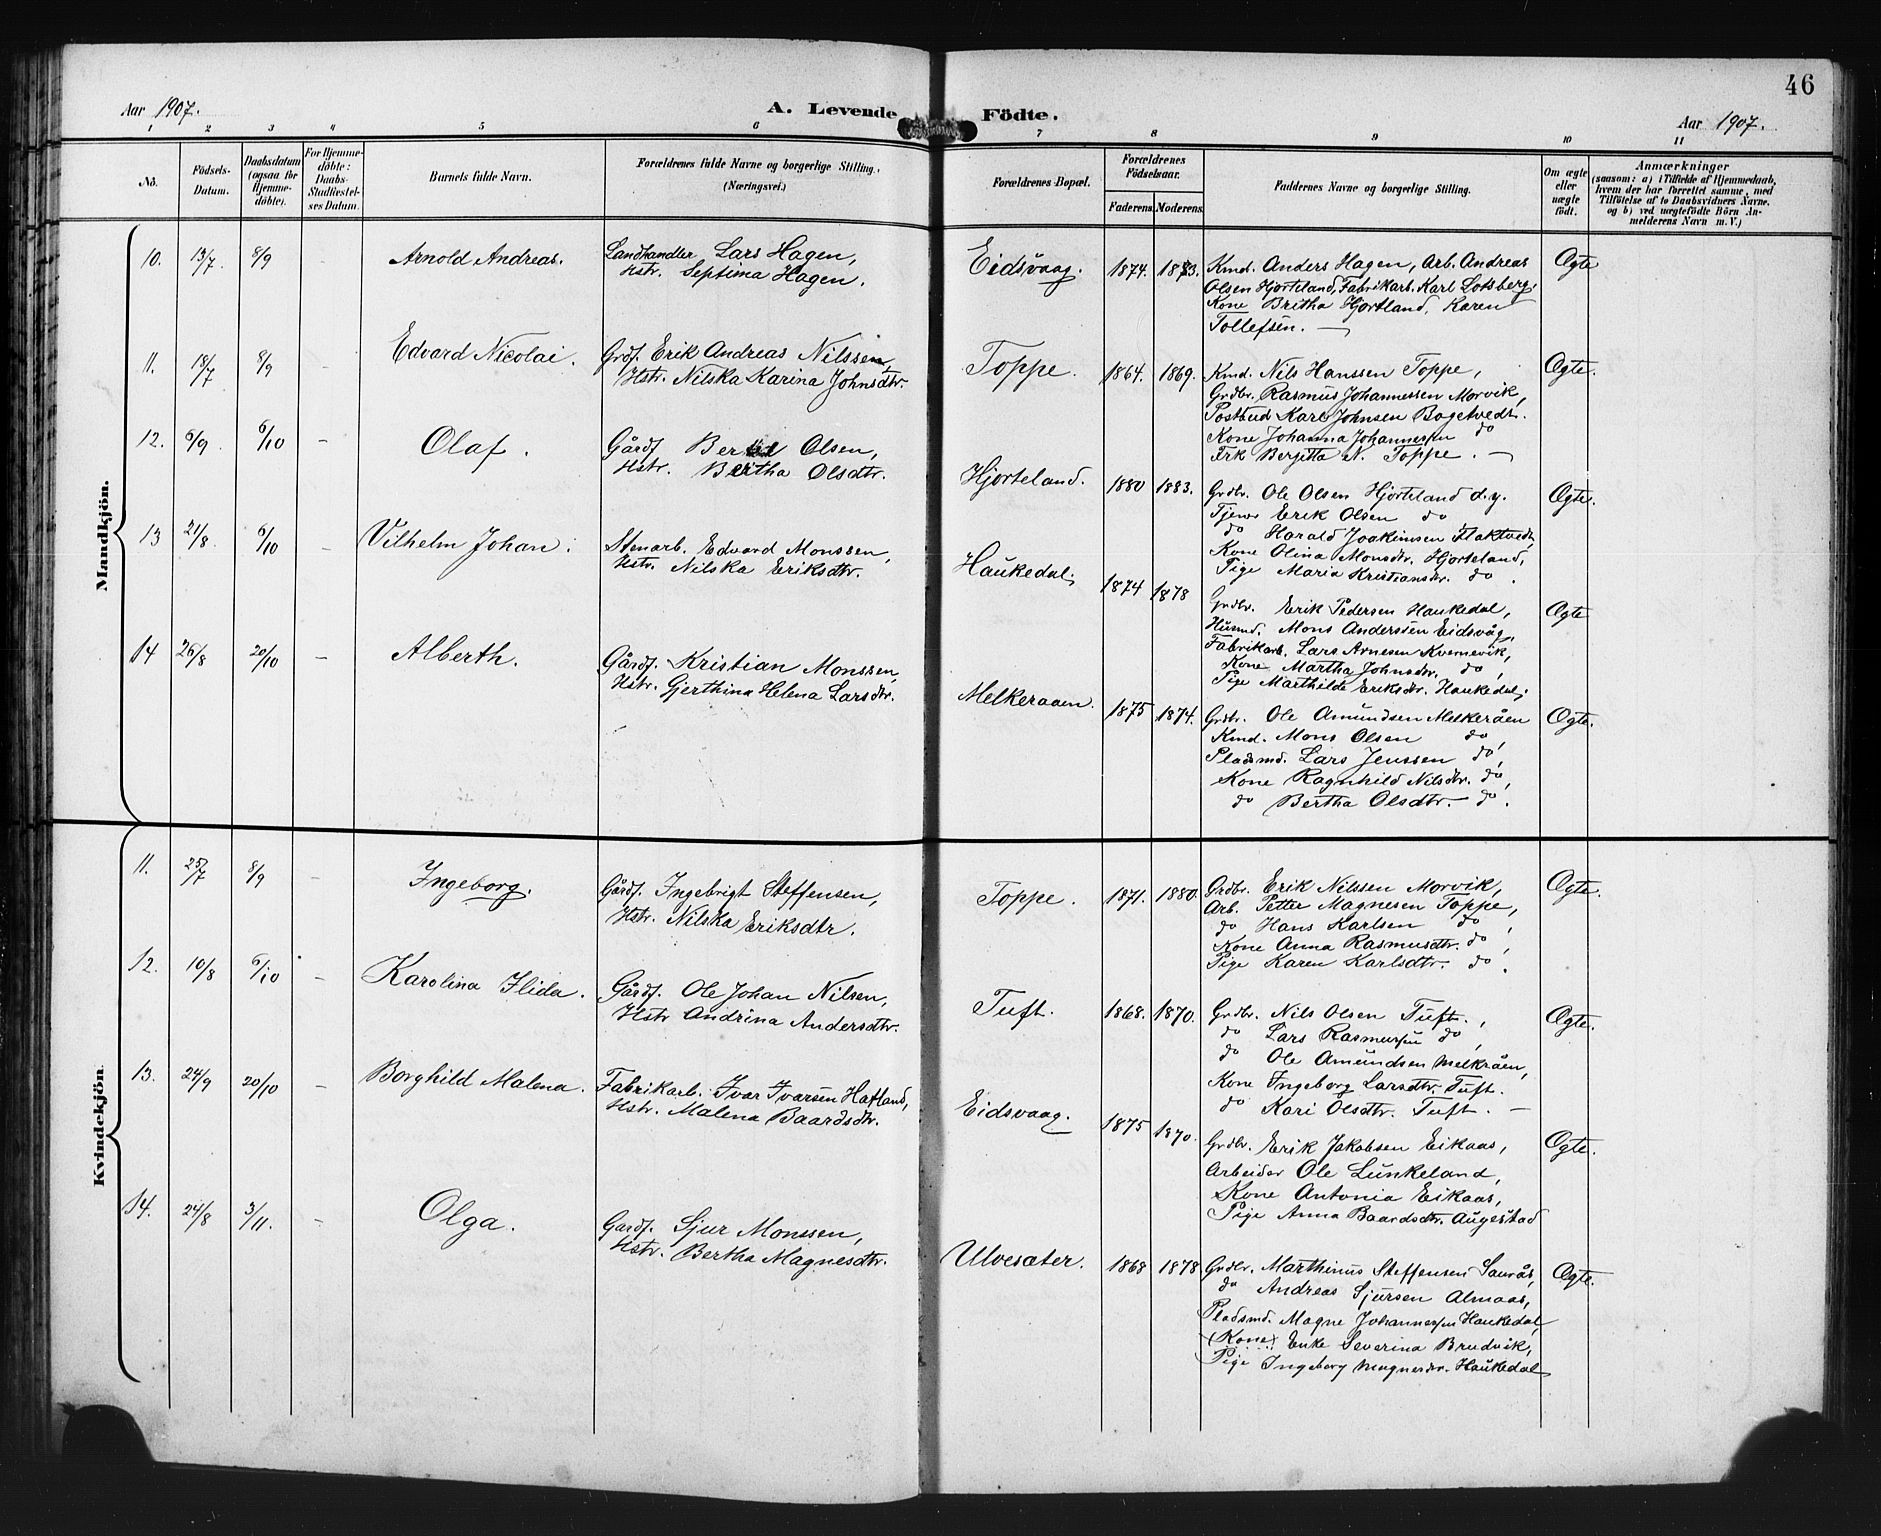 46
Aar 1907.
A. Levende Födte.
Aar 1907.
1 2 3 4 5 6 7 8 9 10 11
No.
Födsels-Datum.
Daabsdatum (ogsaa for Hjemme-döbte).
For Hjemme-döbte: Daabs-Stadfæstel-ses Datum.
Barnets fulde Navn.
Forældrenes fulde Navne og borgerlige Stilling. (Næringsvei.)
Forældrenes Bopæl.
Forældrenes Födselsaar.
Faderens. Moderens.
Faddernes Navne og borgerlige Stilling.
Om ægte eller uægte födt.
Anmærkninger
(saasom: a) i Tilfælde af Hjemmedaab,
hvem der har forrettet samme, med
Tilföielse af to Daabsvidners Navne.
og b) ved uægtefödte Börn An-
melderens Navn m. V.)
Mandkjön.
10. 13/7 8/9 - Arnold Andreas. Landhandler Lars Hagen,
Hstr. Septima Hagen.
Eidsvaag. 1874. 1873. Kmd. Anders Hagen, Arb. Andreas
Olsen Hjorteland, Fabrikarb. Karl Lotsberg.
Kone Britha Hjortland, Karen
Tollefsen. —
Ogte
11. 18/7 8/9 - Edvard Nicolai. Grdf. Erik Andreas Nilssen,
Hstr. Nilska Karina Johnsdtr.
Toppe. 1864. 1869. Kmd. Nils Hanssen Toppe,
Grdbr. Rasmus Johannessen Morvik,
Postbud Karl Johnsen Bogetvedt.
Kone Johanna Johannessen do
Frk Bergitta N. Toppe. —
Ogte.
12. 6/9 6/10 - Olaf. Gårdf. Olsen,
Hstr. Bertha Olsdtr.
Hjorteland. 1880 1883. Grdbr. Ole Olsen Hjorteland d.y.
Tjener Erik Olsen do
do Harald Joakimsen Flaktvedt,
Kone Olina Monsdtr. Hjorteland,
Pige Maria Kristiansdr. do.
Ogte.
13 21/8 6/10 - Vilhelm Johan. Stenarb. Edvard Monssen,
Hstr. Nilska Eriksdtr.
Haukedal. 1874 1878 Grdbr. Erik Pedersen Haukedal,
Husmd. Mons Anderssen Eidsvåg,
Fabrikarb. Lars Arnesen Kvernevik,
Kone Martha Johnsdtr. do,
Pige Marthilde Eriksdtr. Haukedal.
Ogte
14 26/8 20/10 - Alberth. Gårdf. Kristian Monssen,
Hstr. Gjerthina Helena Larsdtr.
Melkeraaen. 1875 1874. Grdbr. Ole Amundsen Melkeråen
Kmd. Mons Olsen do,
Pladsmd. Lars Jenssen do,
Kone Ragnhild Nilsdtr. do,
do Bertha Olsdtr. do.
Ogte.
Kvindekjön.
11. 25/7 8/9 - Ingeborg. Gårdf. Ingebrigt Steffensen,
Hstr. Nilska Eriksdtr.
Toppe. 1871. 1880. Grdbr. Erik Nilssen Morvik,
Arb. Petter Magnesen Toppe,
do Hans Karlsen do,
Kone Anna Rasmusdtr. do,
Pige Karen Karlsdtr. do.
Ogte.
12. 10/8 6/10 - Karolina Ilida. Gårdf. Ole Johan Nilsen,
Hstr Andrina Andersdtr.
Tuft. 1868. 1870. Grdbr. Nils Olsen Tuft.,
do Lars Rasmussen do,
do Ole Amundsen Melkråen,
Kone Ingeborg Larsdtr. Tuft.
do Kari Olsdtr. Tuft. —
Ogte.
13. 24/9 20/10 - Borghild Malena. Fabrikarb. Ivar Ivarsen Hafland,
Hstr. Malena Baardsdtr.
Eidsvaag. 1875 1870. Grdbr. Erik Jakobsen Eikaas,
Arbeider Ole Lunkeland,
Kone Antonia Eikaas,
Pige Anna Baardsdtr. Augestad
Ogte.
14. 24/8 3/11. - Olga. Gardf. Sjur Monssen,
Hstr. Bertha Magnesdtr.
Ulvesæter. 1868 1878 Grdbr. Marthinus Steffensen Saurås,
do Andreas Sjursen Almaas,
Pladsmd. Magne Johannessen Haukedal,
(Kone) Enke Severina Brudvik,
Pige Ingeborg Magnesdtr. Haukedal
Ogte.